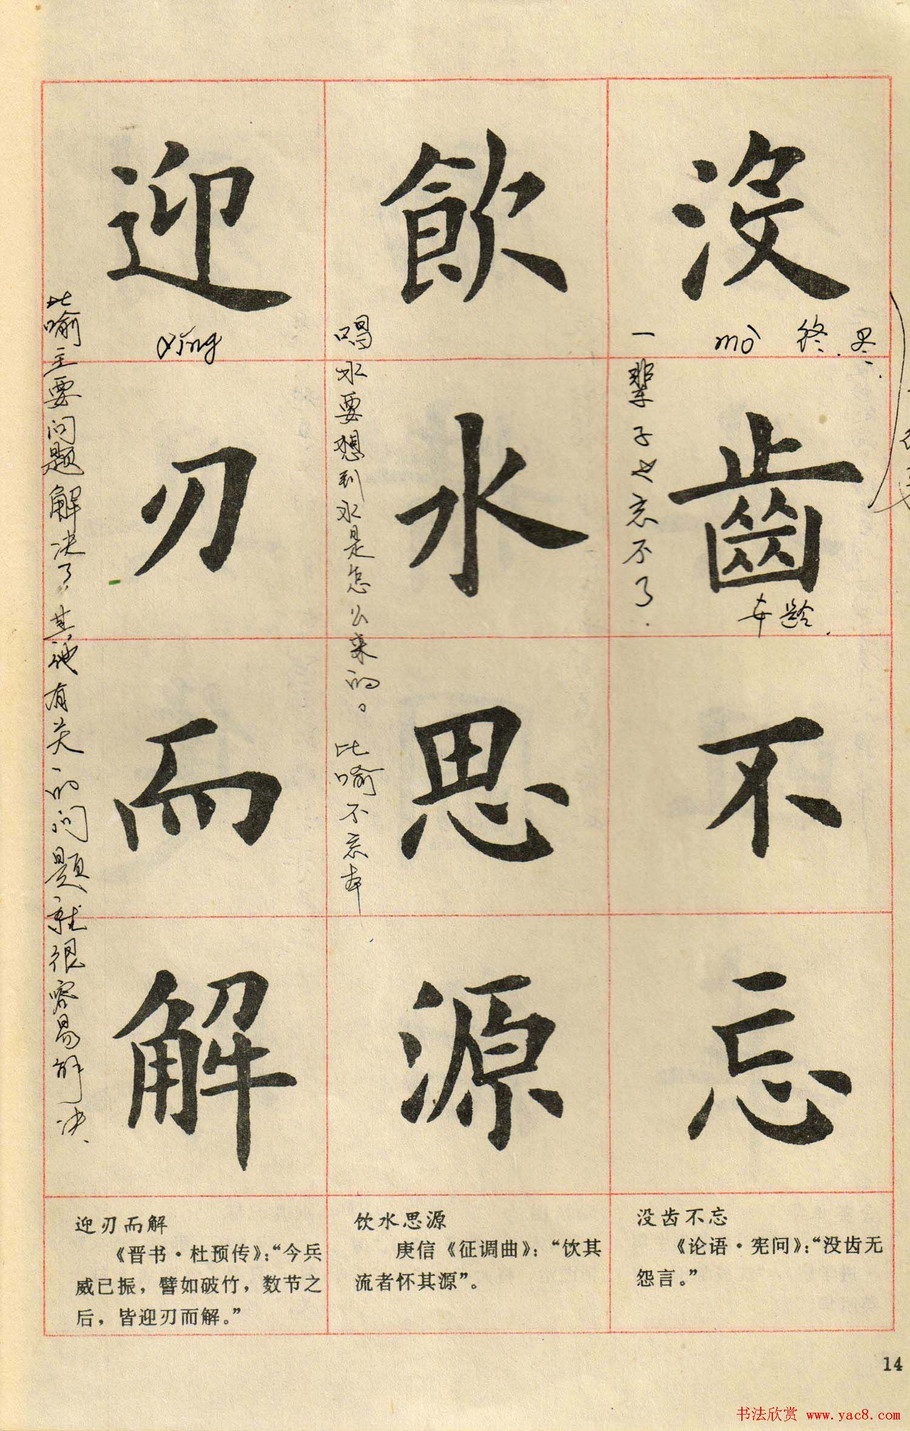 没齿不忘
飲水思源
迎刃而解
mò 终.
一辈子也忘不了.
年龄.
喝水要想到水是怎么来的。比喻不忘本
yíng
比喻主要问题解决了,其他有关的问题就很容易解决.
没齿不忘
《论语·宪问》：“没齿无
怨言。”
饮水思源
庾信《征调曲》：“饮其
流者怀其源”。
迎刃而解
《晋书·杜预传》：“今兵
威已振，譬如破竹，数节之
后，皆迎刃而解。”
14
书法欣赏 www.yac8.com